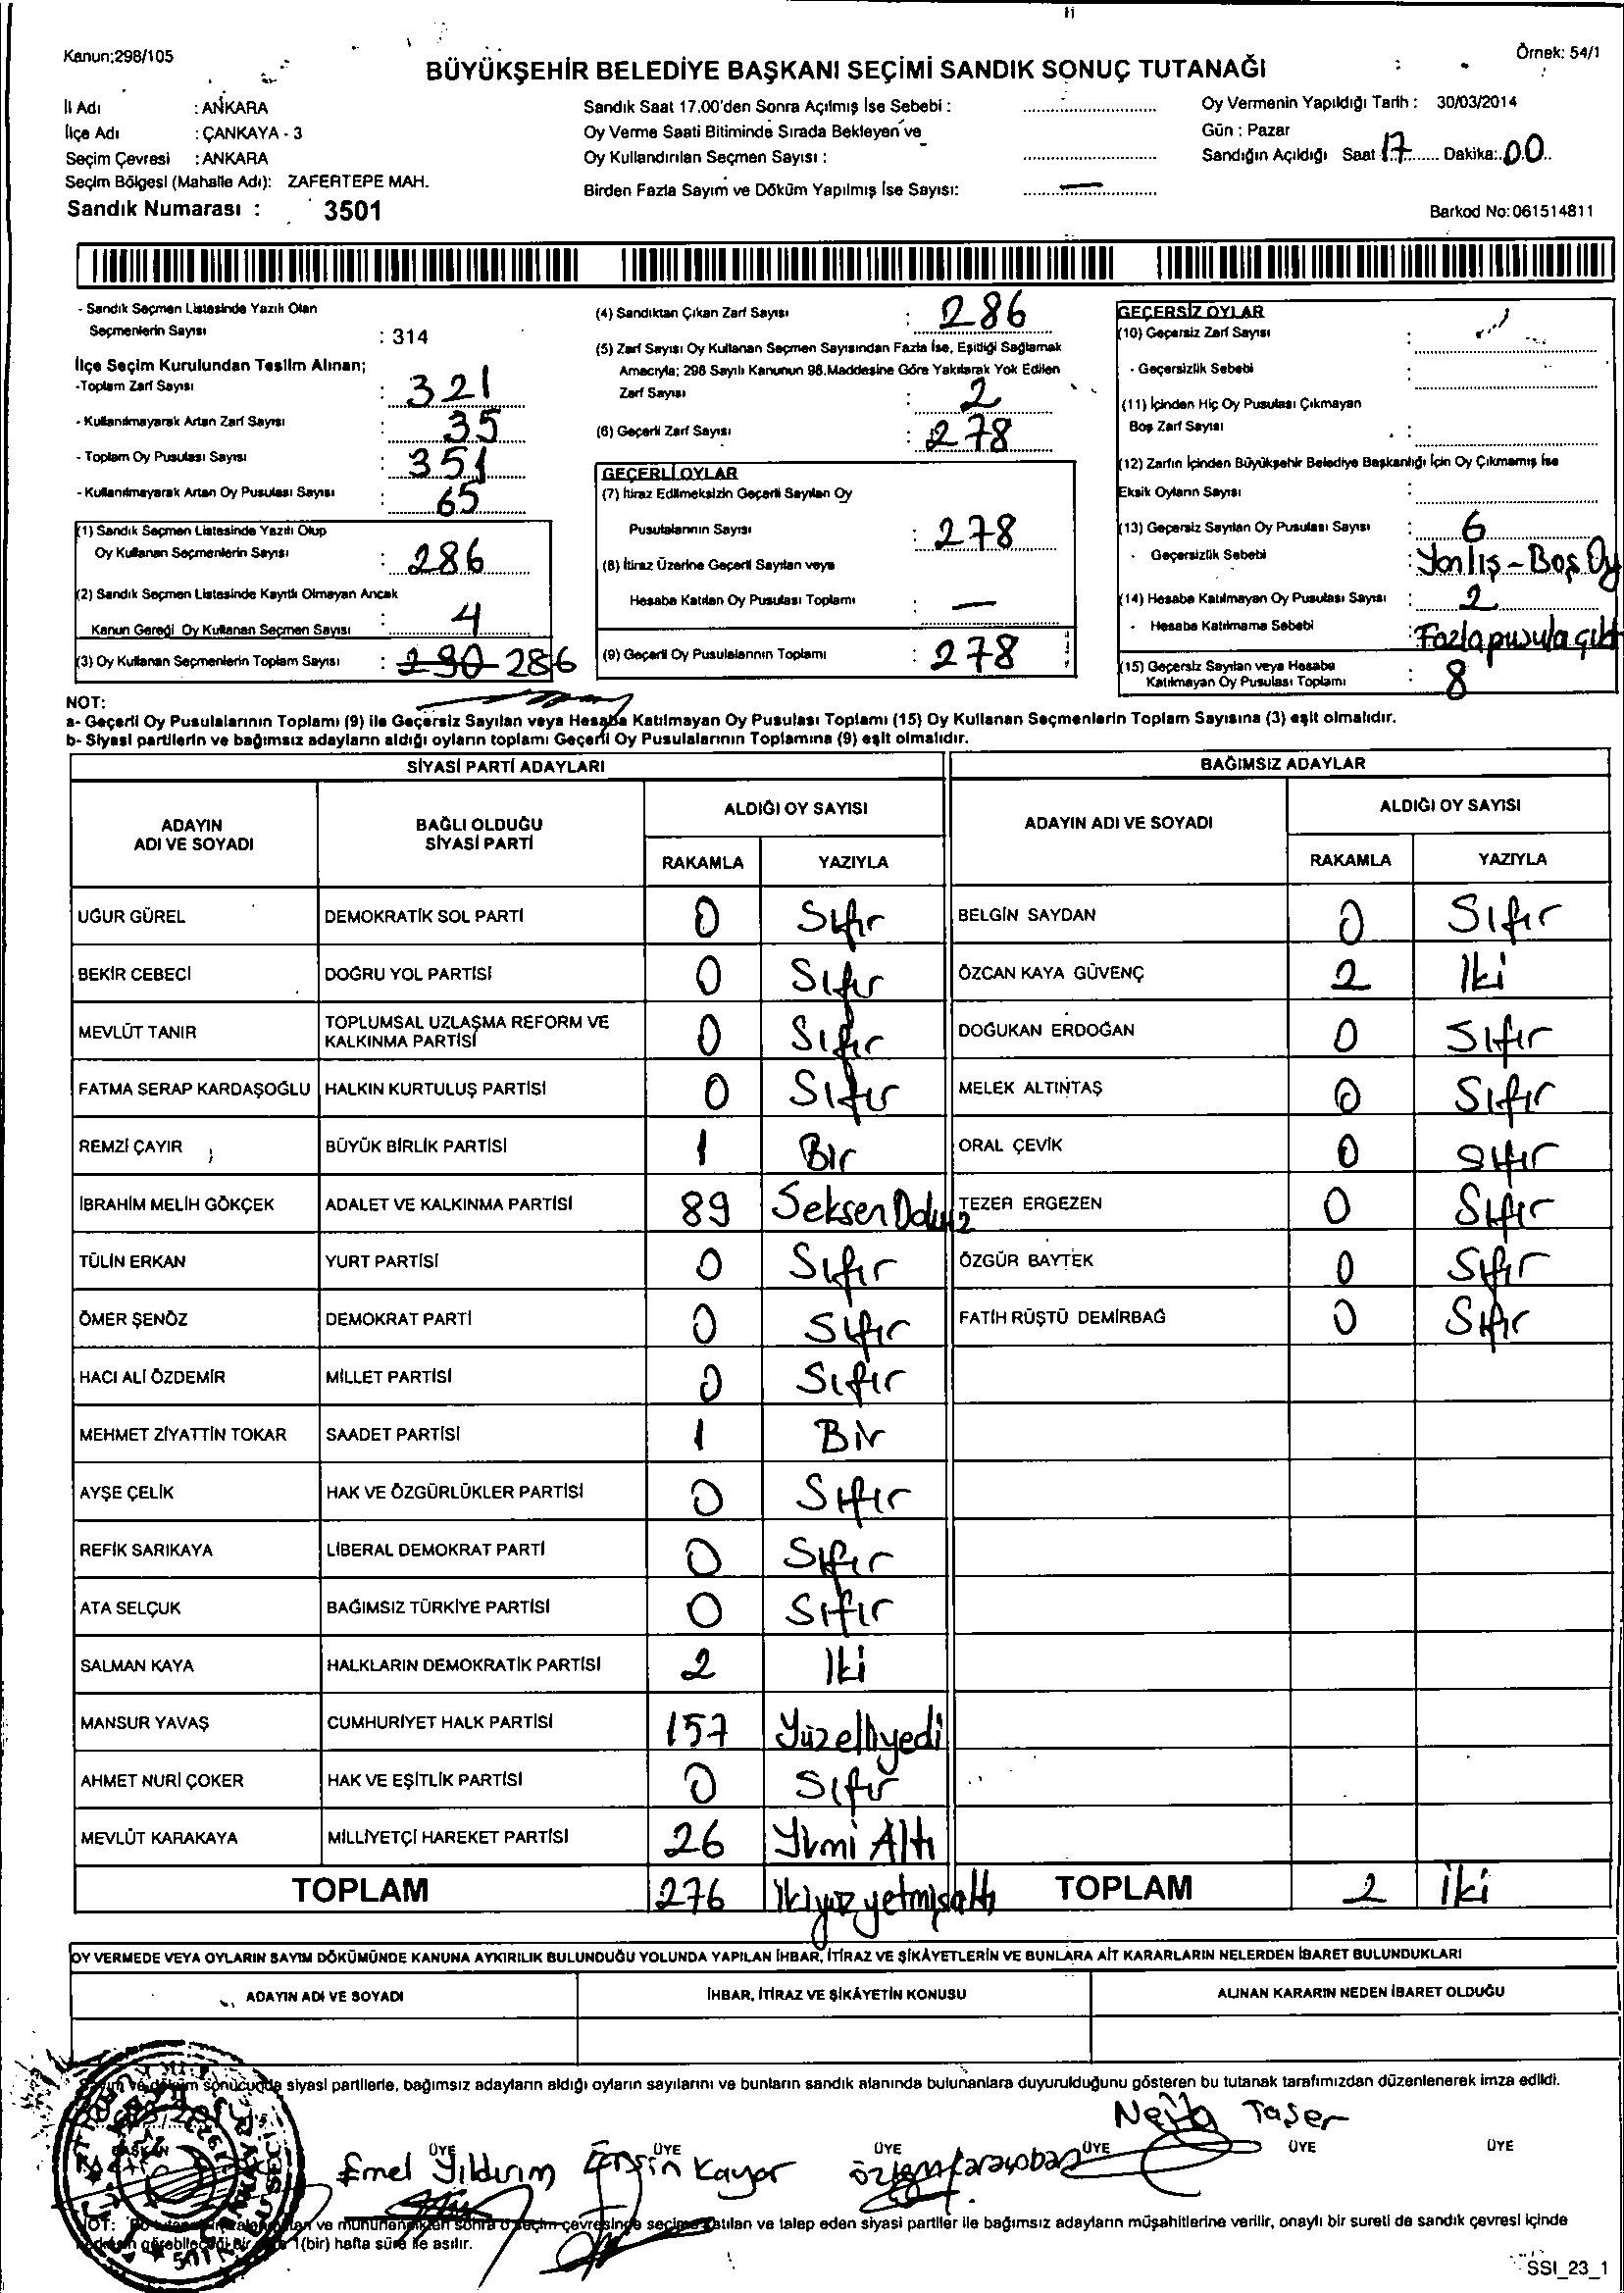 Kanun:298/105
Örnek: 54/1
BÜYÜKŞEHİR BELEDİYE BAŞKANI SEÇİMİ SANDIK SONUÇ TUTANAĞI
İl Adı : ANKARA
İlçe Adı : ÇANKAYA - 3
Seçim Çevresi : ANKARA
Seçim Bölgesi (Mahalle Adı): ZAFERTEPE MAH.
Sandık Numarası : 3501
Sandık Saat 17.00'den Sonra Açılmış İse Sebebi :
Oy Verme Saati Bitiminde Sırada Bekleyen ve
Oy Kullandırılan Seçmen Sayısı :
Birden Fazla Sayım ve Döküm Yapılmış İse Sayısı: —
Oy Vermenin Yapıldığı Tarih : 30/03/2014
Gün : Pazar
Sandığın Açıldığı Saat 17 Dakika: 00
Barkod No:061514811
- Sandık Seçmen Listesinde Yazılı Olan
Seçmenlerin Sayısı : 314
İlçe Seçim Kurulundan Teslim Alınan;
-Toplam Zarf Sayısı : 321
- Kullanılmayarak Artan Zarf Sayısı : 35
- Toplam Oy Pusulası Sayısı : 351
- Kullanılmayarak Artan Oy Pusulası Sayısı : 65
(1) Sandık Seçmen Listesinde Yazılı Olup
Oy Kullanan Seçmenlerin Sayısı : 286
(2) Sandık Seçmen Listesinde Kayıtlı Olmayan Ancak
Kanun Gereği Oy Kullanan Seçmen Sayısı : 4
(3) Oy Kullanan Seçmenlerin Toplam Sayısı : 290 286
(4) Sandıktan Çıkan Zarf Sayısı : 286
(5) Zarf Sayısı Oy Kullanan Seçmen Sayısından Fazla İse, Eşitliği Sağlamak
Amacıyla; 298 Sayılı Kanunun 98.Maddesine Göre Yakılarak Yok Edilen
Zarf Sayısı : 2
(6) Geçerli Zarf Sayısı : 278
GEÇERLİ OYLAR
(7) İtiraz Edilmeksizin Geçerli Sayılan Oy
Pusulalarının Sayısı : 278
(8) İtiraz Üzerine Geçerli Sayılan veya
Hesaba Katılan Oy Pusulası Toplamı : —
(9) Geçerli Oy Pusulalarının Toplamı : 278
GEÇERSİZ OYLAR
(10) Geçersiz Zarf Sayısı :
- Geçersizlik Sebebi :
(11) İçinden Hiç Oy Pusulası Çıkmayan
Boş Zarf Sayısı :
(12) Zarfın İçinden Büyükşehir Belediye Başkanlığı İçin Oy Çıkmamış İse
Eksik Oyların Sayısı :
(13) Geçersiz Sayılan Oy Pusulası Sayısı : 6
- Geçersizlik Sebebi : Yanlış - Boş Oy
(14) Hesaba Katılmayan Oy Pusulası Sayısı : 2
- Hesaba Katılmama Sebebi : Fazla pusula çıktı
(15) Geçersiz Sayılan veya Hesaba
Katılmayan Oy Pusulası Toplamı : 8
NOT:
a- Geçerli Oy Pusulalarının Toplamı (9) ile Geçersiz Sayılan veya Hesaba Katılmayan Oy Pusulası Toplamı (15) Oy Kullanan Seçmenlerin Toplam Sayısına (3) eşit olmalıdır.
b- Siyasi partilerin ve bağımsız adayların aldığı oyların toplamı Geçerli Oy Pusulalarının Toplamına (9) eşit olmalıdır.
SİYASİ PARTİ ADAYLARI BAĞIMSIZ ADAYLAR
ADAYIN ADI VE SOYADI BAĞLI OLDUĞU SİYASİ PARTİ ALDIĞI OY SAYISI ADAYIN ADI VE SOYADI ALDIĞI OY SAYISI
RAKAMLA YAZIYLA RAKAMLA YAZIYLA
UĞUR GÜREL DEMOKRATİK SOL PARTİ 0 Sıfır BELGİN SAYDAN 0 Sıfır
BEKİR CEBECİ DOĞRU YOL PARTİSİ 0 Sıfır ÖZCAN KAYA GÜVENÇ 2 İki
MEVLÜT TANIR TOPLUMSAL UZLAŞMA REFORM VE KALKINMA PARTİSİ 0 Sıfır DOĞUKAN ERDOĞAN 0 Sıfır
FATMA SERAP KARDAŞOĞLU HALKIN KURTULUŞ PARTİSİ 0 Sıfır MELEK ALTINTAŞ 0 Sıfır
REMZİ ÇAYIR BÜYÜK BİRLİK PARTİSİ 1 Bir ORAL ÇEVİK 0 Sıfır
İBRAHİM MELİH GÖKÇEK ADALET VE KALKINMA PARTİSİ 89 Seksen Dokuz TEZER ERGEZEN 0 Sıfır
TÜLİN ERKAN YURT PARTİSİ 0 Sıfır ÖZGÜR BAYTEK 0 Sıfır
ÖMER ŞENÖZ DEMOKRAT PARTİ 0 Sıfır FATİH RÜŞTÜ DEMİRBAĞ 0 Sıfır
HACI ALİ ÖZDEMİR MİLLET PARTİSİ 0 Sıfır
MEHMET ZİYATTİN TOKAR SAADET PARTİSİ 1 Bir
AYŞE ÇELİK HAK VE ÖZGÜRLÜKLER PARTİSİ 0 Sıfır
REFİK SARIKAYA LİBERAL DEMOKRAT PARTİ 0 Sıfır
ATA SELÇUK BAĞIMSIZ TÜRKİYE PARTİSİ 0 Sıfır
SALMAN KAYA HALKLARIN DEMOKRATİK PARTİSİ 2 İki
MANSUR YAVAŞ CUMHURİYET HALK PARTİSİ 157 Yüzelliyedi
AHMET NURİ ÇOKER HAK VE EŞİTLİK PARTİSİ 0 Sıfır
MEVLÜT KARAKAYA MİLLİYETÇİ HAREKET PARTİSİ 26 Yirmi Altı
TOPLAM 276 ikiyüzyetmişaltı TOPLAM 2 İki
OY VERMEDE VEYA OYLARIN SAYIM DÖKÜMÜNDE KANUNA AYKIRILIK BULUNDUĞU YOLUNDA YAPILAN İHBAR, İTİRAZ VE ŞİKÂYETLERİN VE BUNLARA AİT KARARLARIN NELERDEN İBARET BULUNDUKLARI
ADAYIN ADI VE SOYADI İHBAR, İTİRAZ VE ŞİKÂYETİN KONUSU ALINAN KARARIN NEDEN İBARET OLDUĞU
Sayım ve döküm sonucunda siyasi partilerle, bağımsız adayların aldığı oyların sayılarını ve bunların sandık alanında bulunanlara duyurulduğunu gösteren bu tutanak tarafımızdan düzenlenerek imza edildi.
BAŞKAN ÜYE ÜYE ÜYE ÜYE ÜYE ÜYE
Emel Yıldırım Ersin Kayar Özlem Taşer
NOT: ve mühürlendikten sonra o seçim çevresinde seçime katılan ve talep eden siyasi partiler ile bağımsız adayların müşahitlerine verilir, onaylı bir sureti de sandık çevresi içinde
herkesin görebileceği bir 1(bir) hafta süre ile asılır.
SSI_23_1